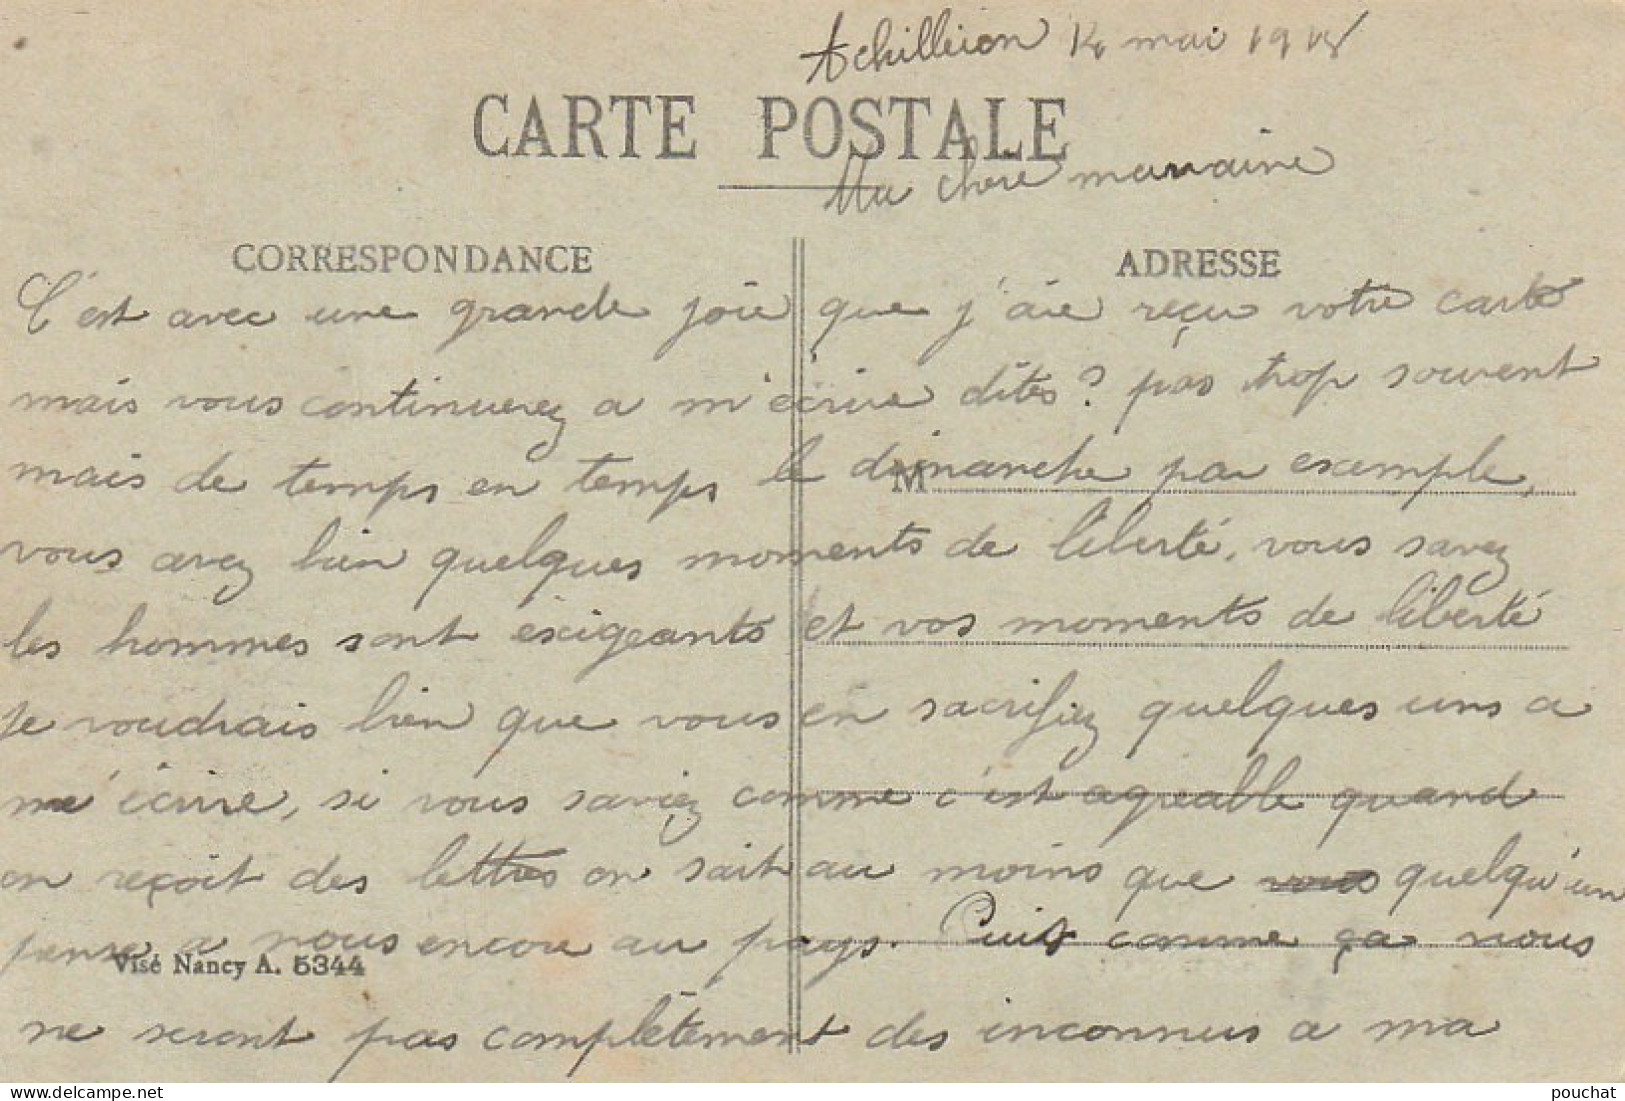 Achilleion 14 mai 1918
CARTE POSTALE
Ma chere marraine
CORRESPONDANCE
ADRESSE
C'est avec une grande joie que j'aie reçu votre carte
mais vous continuerez a m'écrire dites? pas trop souvent
mais de temps en temps le dimanche par exemple,
M
vous avez bien quelques moments de liberté, vous savez
les hommes sont éxigeants et vos moments de liberté
je voudrais bien que vous en sacrifiez quelques uns a
m'écrire, si vous saviez comme c'est agreable quand
on reçoit des lettres on sait au moins que vous quelqu'un
pense a nous encore au pays. Puis comme ça nous
Visé Nancy A. 5344
ne seront pas complètement des inconnus a ma
pouchat